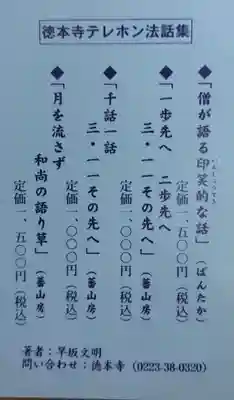 徳本寺テレホン法話集
◆「僧が語る印笑的な話」（ぱんたか）
いんしょうてき
定価一、五〇〇円（税込）
◆「一歩先へ　二歩先へ
三・一一その先へ」（蕃山房）
定価一、〇〇〇円（税込）
◆「千話一話
三・一一その先へ」（蕃山房）
定価一、〇〇〇円（税込）
◆「月を流さず
和尚の語り草」（蕃山房）
定価一、五〇〇円（税込）
著者：早坂文明
問い合わせ：徳本寺（0223-38-0320）